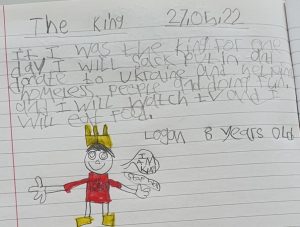 The King 27,01,22
If I was the king for one
day I will
donate to Ukraine and
homeless, people and
and I will watch tv and I
will eat food.
Logan 8 years old
I AM